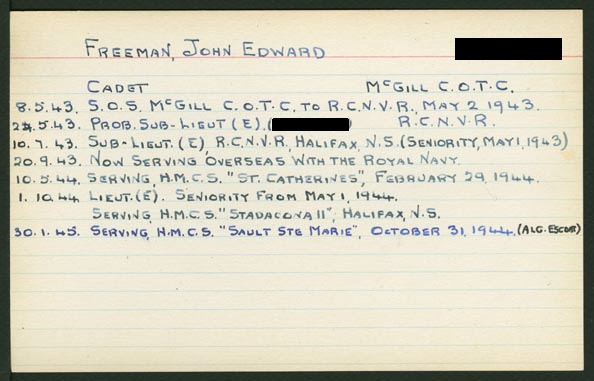 FREEMAN, JOHN EDWARD
CADET McGILL C.O.T.C.
8.5.43. S.O.S. McGILL C.O.T.C. TO R.C.N.V.R., MAY 2 1943.
24.5.43. PROB. SUB-LIEUT (E), ( ) R.C.N.V.R.
10.7.43. SUB-LIEUT. (E), R.C.N.V.R, HALIFAX, N.S. (SENIORITY, MAY 1, 1943)
20.9.43. NOW SERVING OVERSEAS WITH THE ROYAL NAVY.
10.5.44. SERVING, H.M.C.S. "ST. CATHERINES", FEBRUARY 29, 1944.
1.10.44 LIEUT. (E). SENIORITY FROM MAY 1, 1944.
SERVING, H.M.C.S. "STADACONA II", HALIFAX, N.S.
30.1.45. SERVING, H.M.C.S. "SAULT STE MARIE", OCTOBER 31, 1944. (ALG. ESCORT)